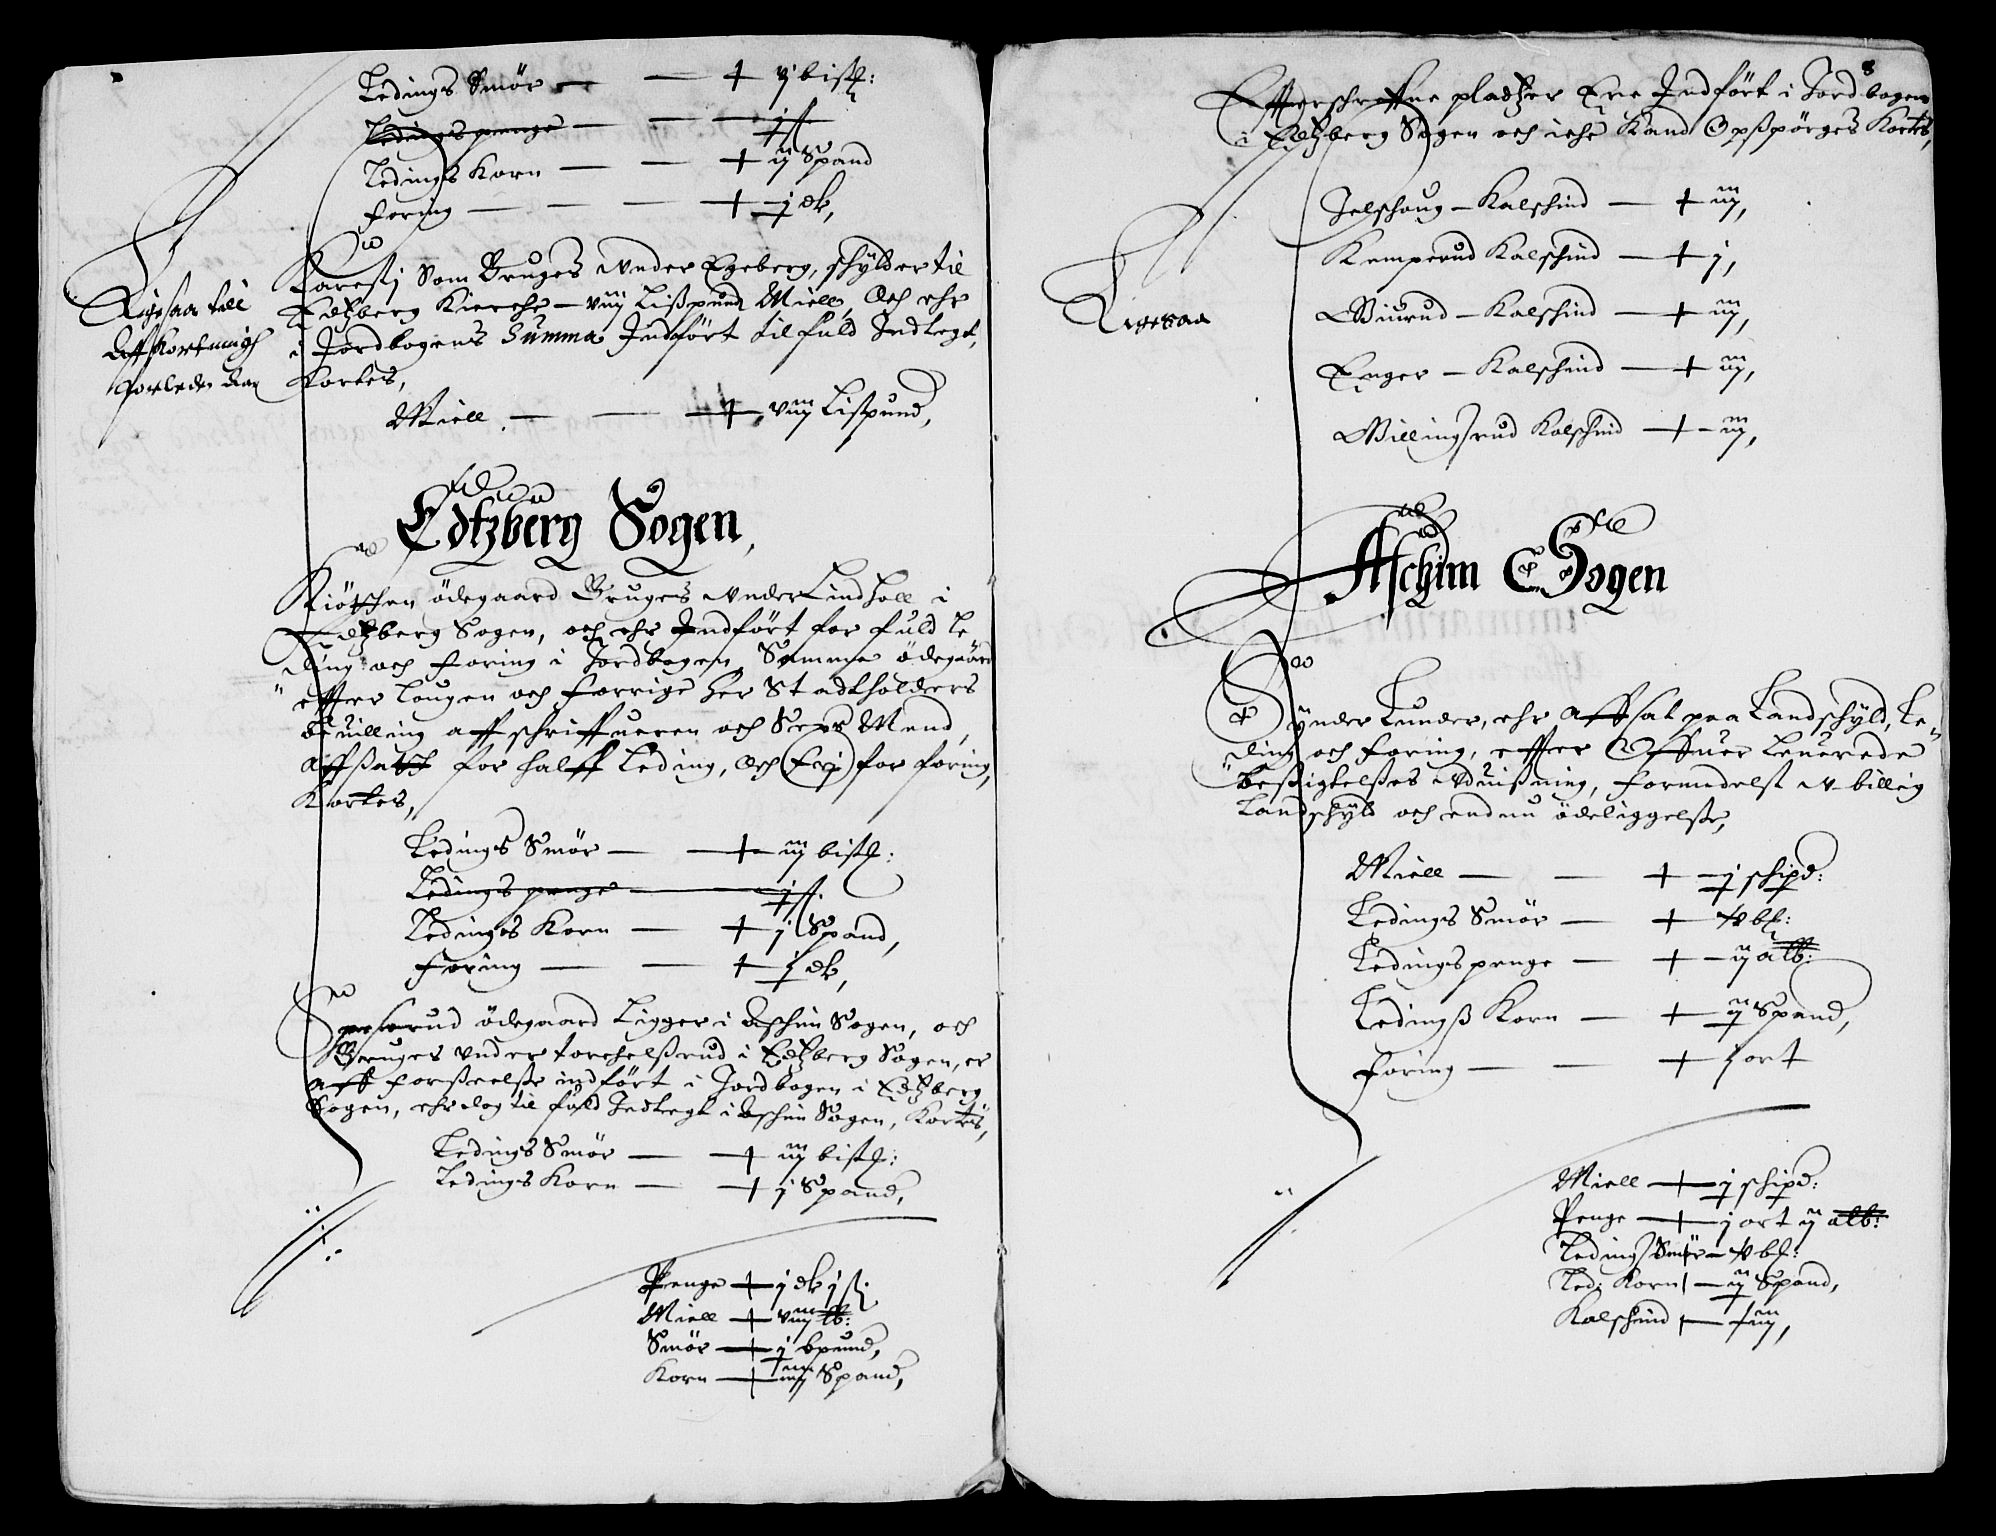 Ledings Smör — — + ÿ bisl:
Ledingspenge — — — j ß
Ledings Korn — — + ÿ Spand
Foring — — — + j dlr,
Karesj Som Bruges under Egeberg, schylder til
Edtzberg Kierche — viij Lißpund Miell, Och ehr
i Jordbogens Summa Indfört til fuld Indtegt,
Kortes,
Ligesaa till
Aff Kortningh
Miell — — + viij Lißpund,
Edtzberg Sogen,
Kiötschen ödegaard Bruges under Lindholl i
Edtzberg Sogen, och ehr Indfört for fuld Le-
ding och Foring i Jordbogen, Samme ödegaard
effter Lougen och Forrige Her Stadtholders
Beuilling affschriffueren och Sex Mend
Affsatt for halff Leding, Och for foring,
Kortes,
Ledings Smör — — + iij bisl:
Ledings penge — j ß.
Ledings Korn — + j Spand,
Foring — — + j dlr,
rud ödegaard Ligger i Aschim Sogen, och
Bruges under torchelßrud i Edtzberg Sogen, er
aff Forseelße indfört i Jordbogen i Edtzberg
Sogen, ehr dog til fuld Indtegt i Aschim Sogen, Kortis,
Ledings Smör — + iij bisl:
Ledings Korn — + j Spand,
Penge + j dlr j ß.
Miell + viij lb:
Smör + j bpund,
Korn + iiij Spand,
8
Effterschreffne pladtzer Ere Indfört i Jordbogen
i Edtzberg Sogen och iche Kand Opßpörges Kortes,
Ligesaa
Jelschoug — Kalschind — + iij,
Kemperud Kalschind — + j,
Kalschind — + iij,
Enger — Kalschind — + iij,
Willingsrud Kalschind — + iij,
Aschim Sogen
Synder Lunder, ehr Affsat paa Landschyld, Le-
ding och Foring, effter Offuer Leuerede
Besigtelßes Uduißning, formedelst U-billig
Landschyld och endnu ödeliggelße,
Miell — — + j schipd:
Ledings Smör — + bl:
Ledings penge — + ij alb:
Ledingß Korn — + ij Spand,
Foring — — + j ort
Miell + j schipd:
Penge + j ort ij alb:
Ledings Smör — bl:
Led: Korn — ij Spand,
Kalschind — iij,